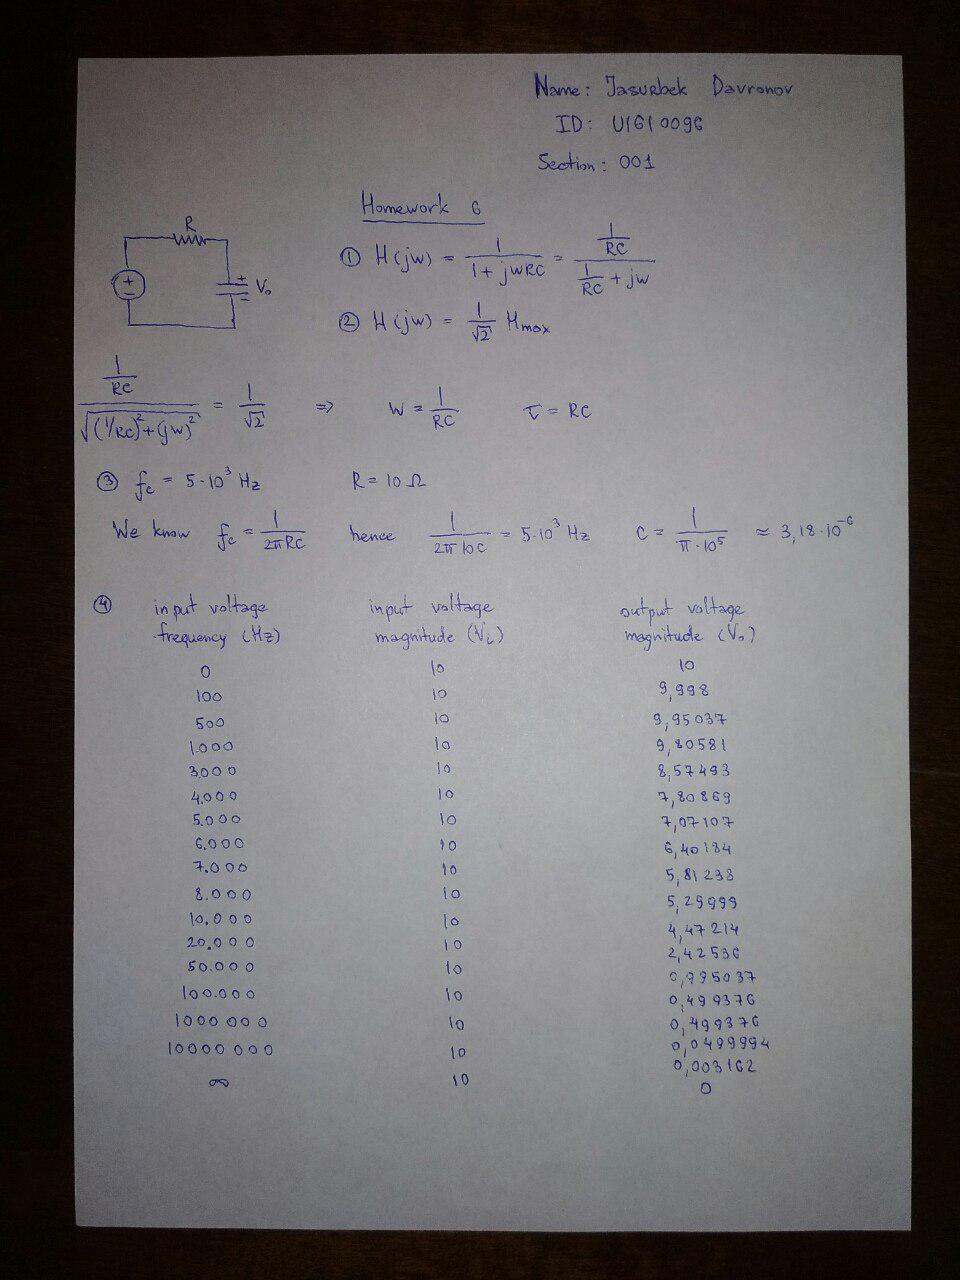 Name: Jasurbek Davronov
ID: U1610096
Section: 001
Homework 6
R
+
-
+
-
V₀
① H(jw) = 1 / (1 + jwRC) = (1/RC) / (1/RC + jw)
② H(jw) = 1/√2 Hmax
(1/RC) / √((1/RC)² + (jw)²) = 1/√2 ⇒ W = 1/RC τ = RC
③ fc = 5·10³ Hz R = 10 Ω
We know fc = 1/(2π RC) hence 1/(2π 10C) = 5·10³ Hz C = 1/(π·10⁵) ≈ 3,18·10⁻⁶
④ input voltage input voltage output voltage
frequency (Hz) magnitude (Vi) magnitude (V₀)
0 10 10
100 10 9,998
500 10 9,95037
1.000 10 9,80581
3.000 10 8,57493
4.000 10 7,80869
5.000 10 7,07107
6.000 10 6,40184
7.000 10 5,81238
8.000 10 5,29999
10.000 10 4,47214
20.000 10 2,42536
50.000 10 0,995037
100.000 10 0,499376
1000 000 10 0,499376
10000 000 10 0,0499994
0,003162
∞ 10 0